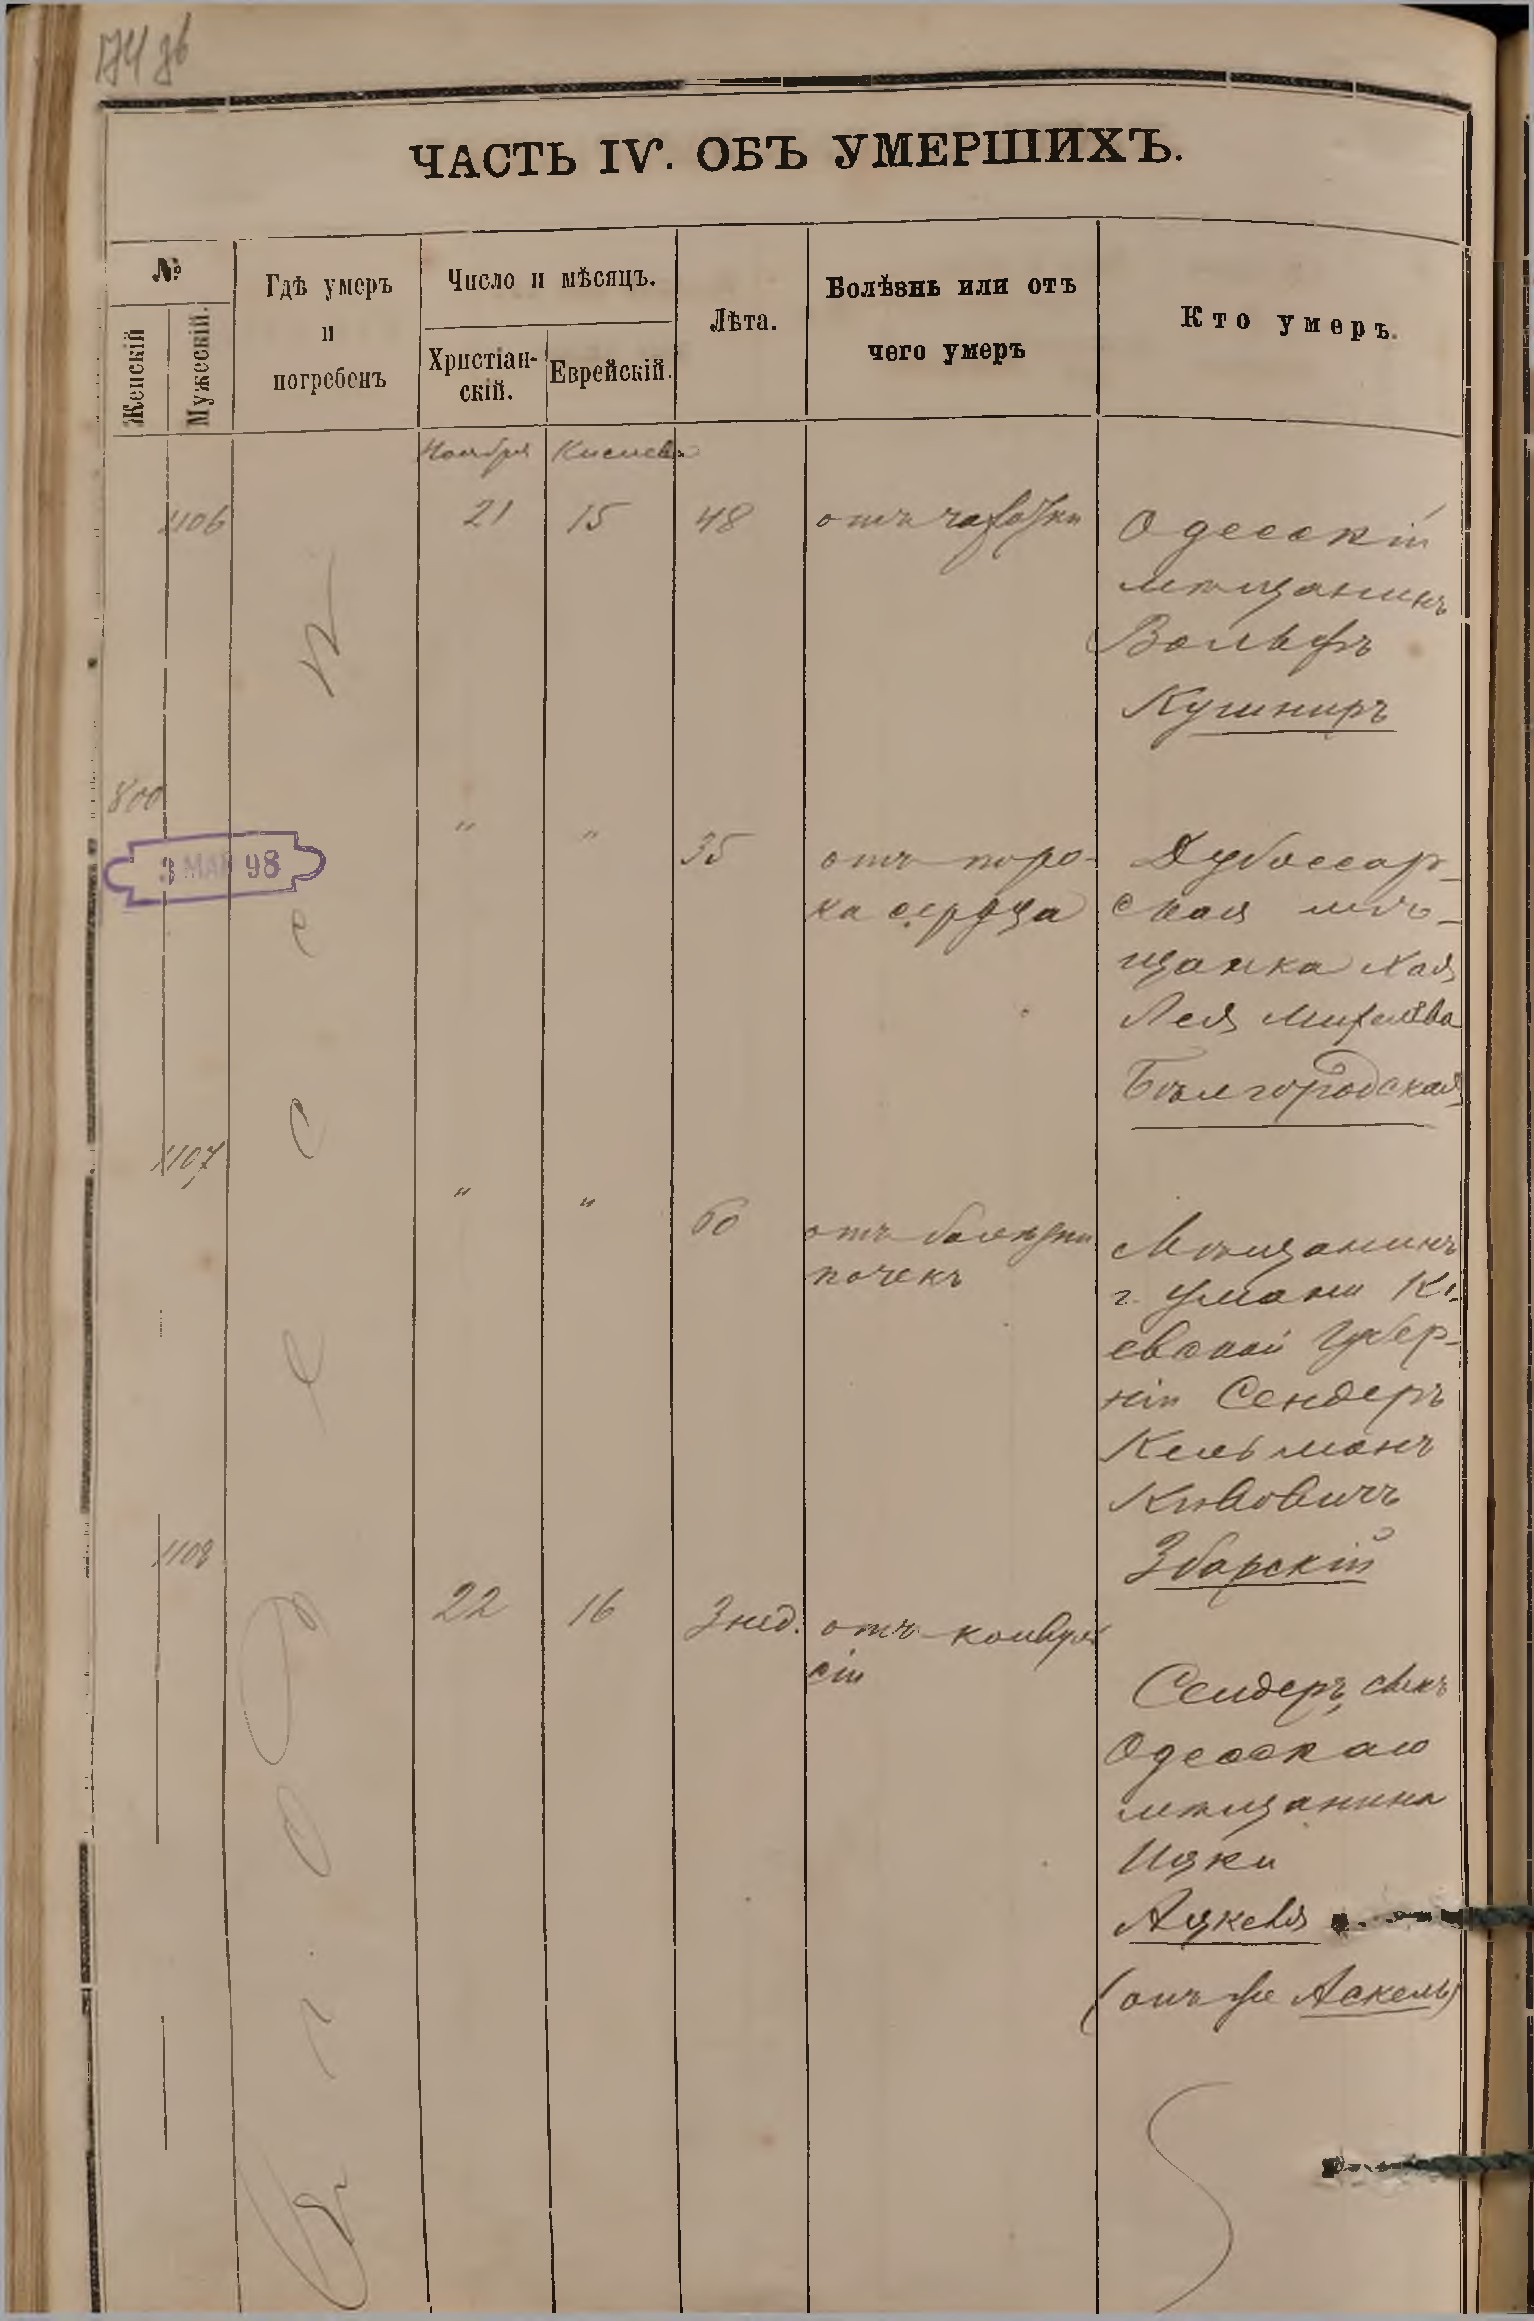 174 об
ЧАСТЬ IV. ОБЪ УМЕРШИХЪ.
№
Женскій
Мужескій.
Гдѣ умеръ
и
погребенъ
Число и мѣсяцъ.
Христіан-
скій.
Еврейскій.
Лѣта.
Болѣзнь или отъ
чего умеръ
Кто умеръ.
Ноября Кислева
1106 21 15 48 отъ чахотки Одесскій
мѣщанинъ
Вольфъ
Кушниръ
800 " " 35 отъ поро- Дубоссар-
ка сердца ская мѣ-
щанка Хая
Лея Михелева
Бѣлгородская
3 МАЙ 98
1107 " " 60 отъ болѣзни Мѣщанинъ
почекъ г. Умани Кі-
евской Губер-
ніи Сендеръ
Кельманъ
Кивовичъ
Збарскій
1108 22 16 3 нед. отъ конвул
сіи Сендеръ, сынъ
Одесскаго
мѣщанина
Ицки
Ацкеля
(онъ же Аскель)
Въ г. Одессѣ